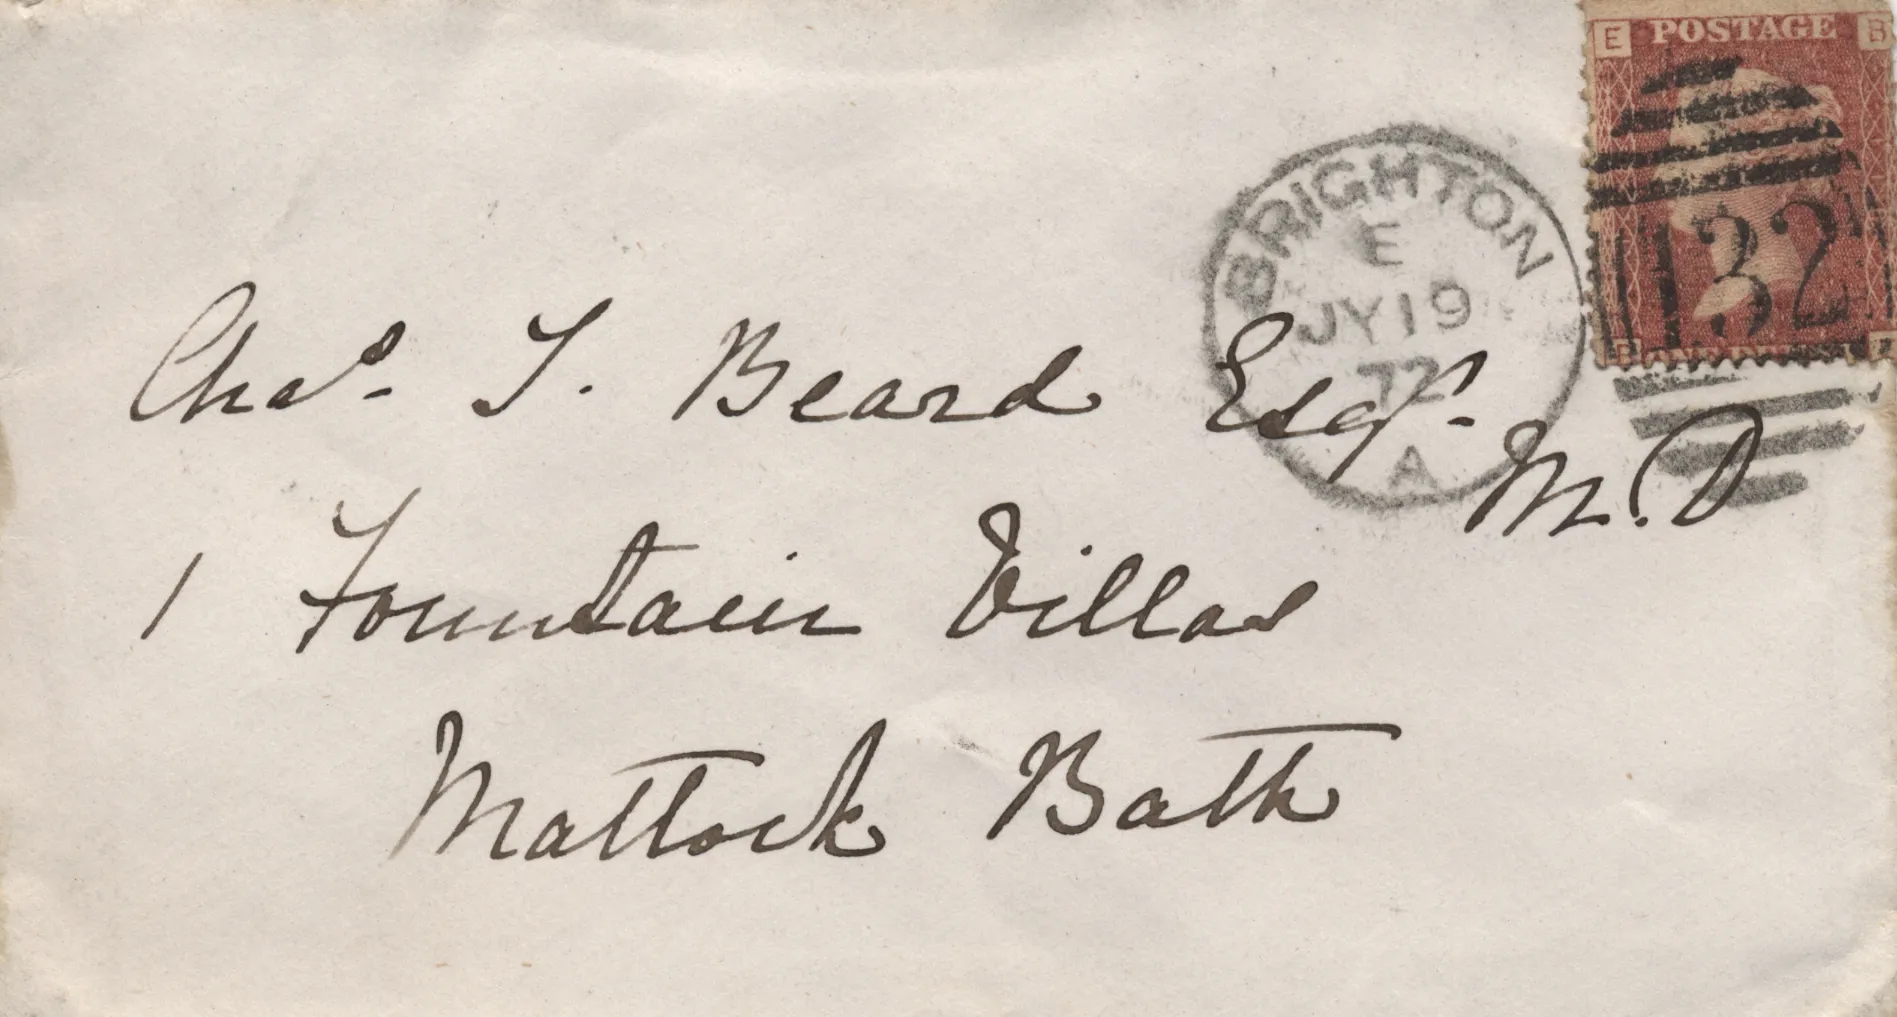 E POSTAGE B
BRIGHTON
E
JY 19
72
A
132
Chas. T. Beard Esqr. M.D
1 Fountain Villas
Mattock Bath